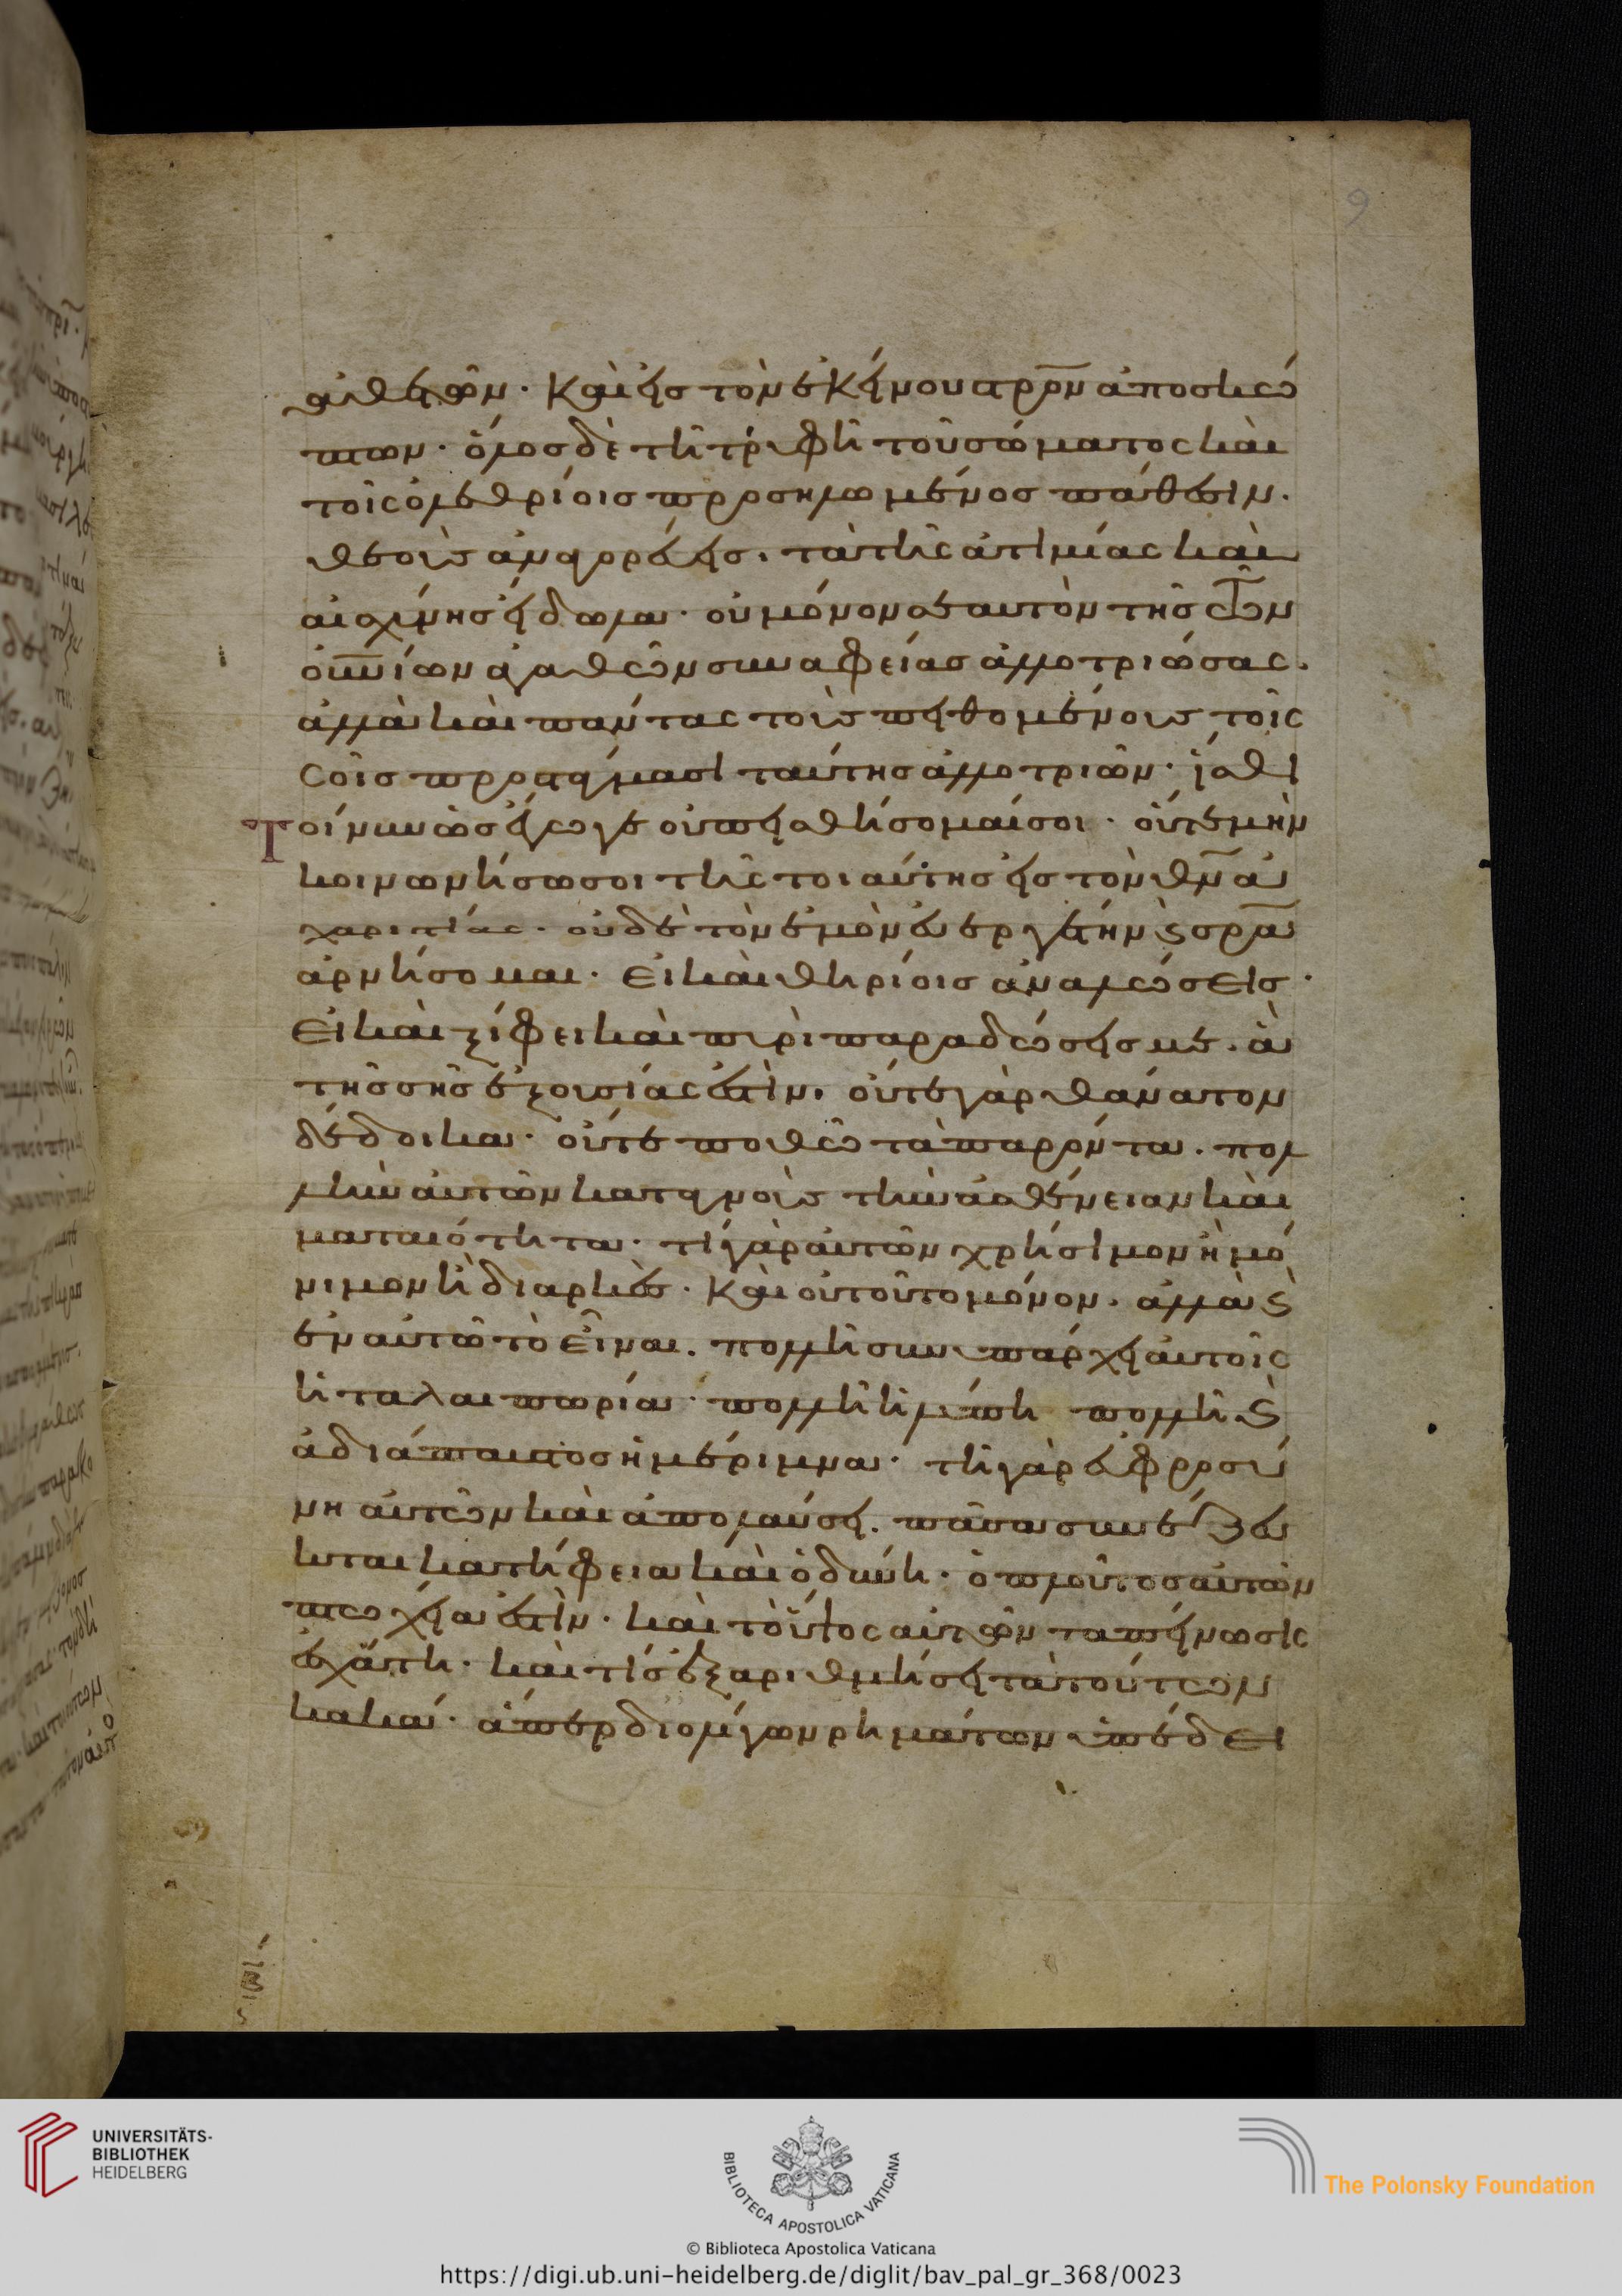 αἰσθητῶν· καὶ εἰς τὸν ἐκείνου στρον ἀποσκώ
πτων· ὅλος δὲ τῆ τρυφῆ τοῦ σώματος καὶ
τοῖς ὀλεθρίοις προσηλωμένος πάθεσιν.
θεοὺς ἀναγορεύεις. τὰ τῆς ἀτιμίας καὶ
αἰσχύνης εἴδωλα· οὐ μόνον σεαυτὸν τῆς τῶν
οὐνίων ἀγαθῶν συναφείας ἀλλοτριώσας.
ἀλλὰ καὶ πάντας τοὺς πειθομένους τοῖς
σοῖς προστάγμασι ταύτης ἀλλοτριῶν· ἴσθι
Τοίνυν ὡς ἔγωγε οὐ πεισθήσομαί σοι· οὔτε μὴν
κοινωνήσω σοι τῆς τοιαύτης εἰς τὸν θν ἀ
χαριστίας· οὐδὲ τὸν ἐμὸν εὐεργέτην ϗ σρα
ἀρνήσομαι· εἰ καὶ θηρίοις ἀναλώσεις·
εἰ καὶ ξίφει καὶ πυρὶ παραδώσεις με. ἃ
τῆς σῆς ἐξουσίας ἐστὶν. οὔτε γὰρ θάνατον
δέδοικα· οὔτε ποθῶ τὰ παρόντα. πολ
λὴν αὐτῶν καταγνοὺς τὴν ἀσθένειαν καὶ
ματαιότητα· τί γὰρ αὐτῶν χρήσιμον ἢ μό
νιμον ἢ διαρκὲς· καὶ οὐ τοῦτο μόνον. ἀλλὰ ϗ
ἐν αὐτῶ τὸ εἶναι. πολλὴ συνυπάρχει αὐτοῖς
ἡ ταλαιπωρία· πολλὴ ἡ λύπη πολλὴ ϗ
ἀδιάσπαστος ἡ μέριμνα· τῆ γὰρ εὐφροσύ
νη αὐτῶν καὶ ἀπολαύσει. πᾶσα συνέζευ
κται κατήφεια καὶ ὀδύνη· ὁ πλοῦτος αὐτῶν
πτωχεία ἐστὶν· καὶ τὸ ὕψος αὐτῶν ταπείνωσις
ἐσχάτη· καὶ τίς ἐξαριθμήσει τὰ τούτων
κακά· ἅπερ δι ὀλίγων ῥημάτων ὑπέδει
9
UNIVERSITÄTS-
BIBLIOTHEK
HEIDELBERG
BIBLIOTECA APOSTOLICA VATICANA
© Biblioteca Apostolica Vaticana
The Polonsky Foundation
https://digi.ub.uni-heidelberg.de/diglit/bav_pal_gr_368/0023